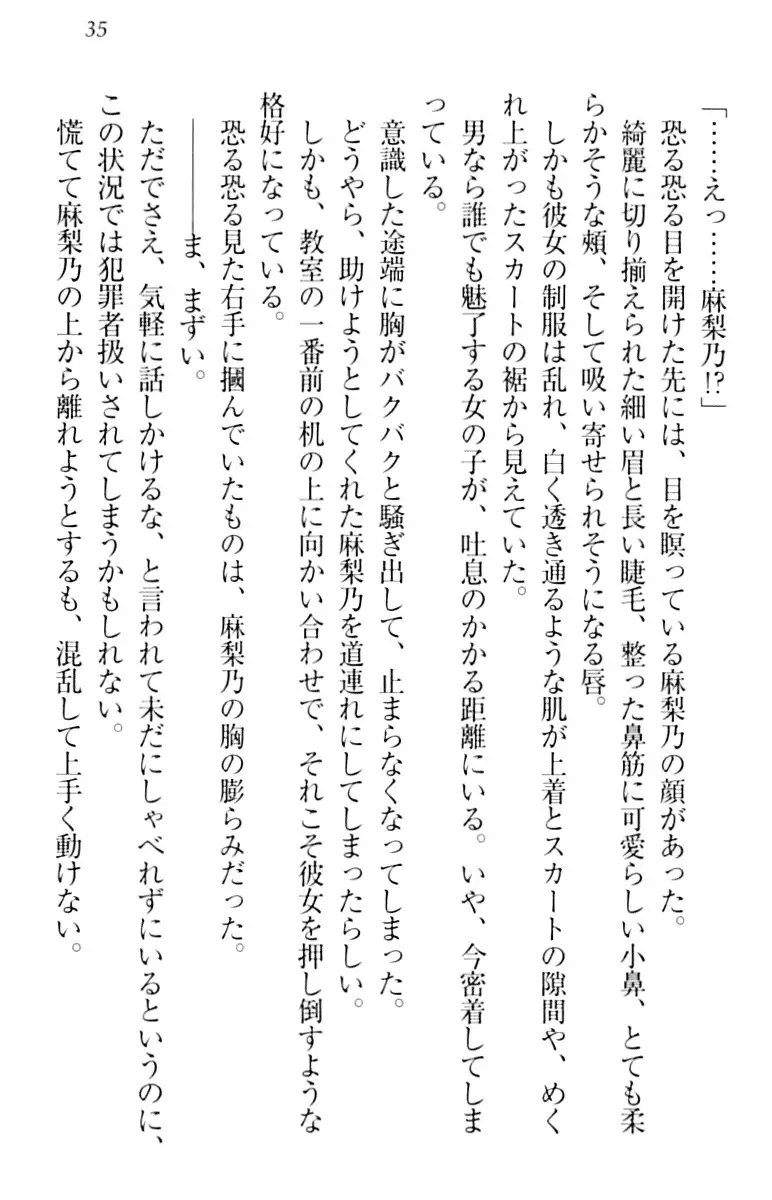 35
「……えっ……麻梨乃!?」
恐る恐る目を開けた先には、目を瞑っている麻梨乃の顔があった。
綺麗に切り揃えられた細い眉と長い睫毛、整った鼻筋に可愛らしい小鼻、とても柔
らかそうな頰、そして吸い寄せられそうになる唇。
しかも彼女の制服は乱れ、白く透き通るような肌が上着とスカートの隙間や、めく
れ上がったスカートの裾から見えていた。
男なら誰でも魅了する女の子が、吐息のかかる距離にいる。いや、今密着してしま
っている。
意識した途端に胸がバクバクと騒ぎ出して、止まらなくなってしまった。
どうやら、助けようとしてくれた麻梨乃を道連れにしてしまったらしい。
しかも、教室の一番前の机の上に向かい合わせで、それこそ彼女を押し倒すような
格好になっている。
恐る恐る見た右手に摑んでいたものは、麻梨乃の胸の膨らみだった。
――――ま、まずい。
ただでさえ、気軽に話しかけるな、と言われて未だにしゃべれずにいるというのに、
この状況では犯罪者扱いされてしまうかもしれない。
慌てて麻梨乃の上から離れようとするも、混乱して上手く動けない。